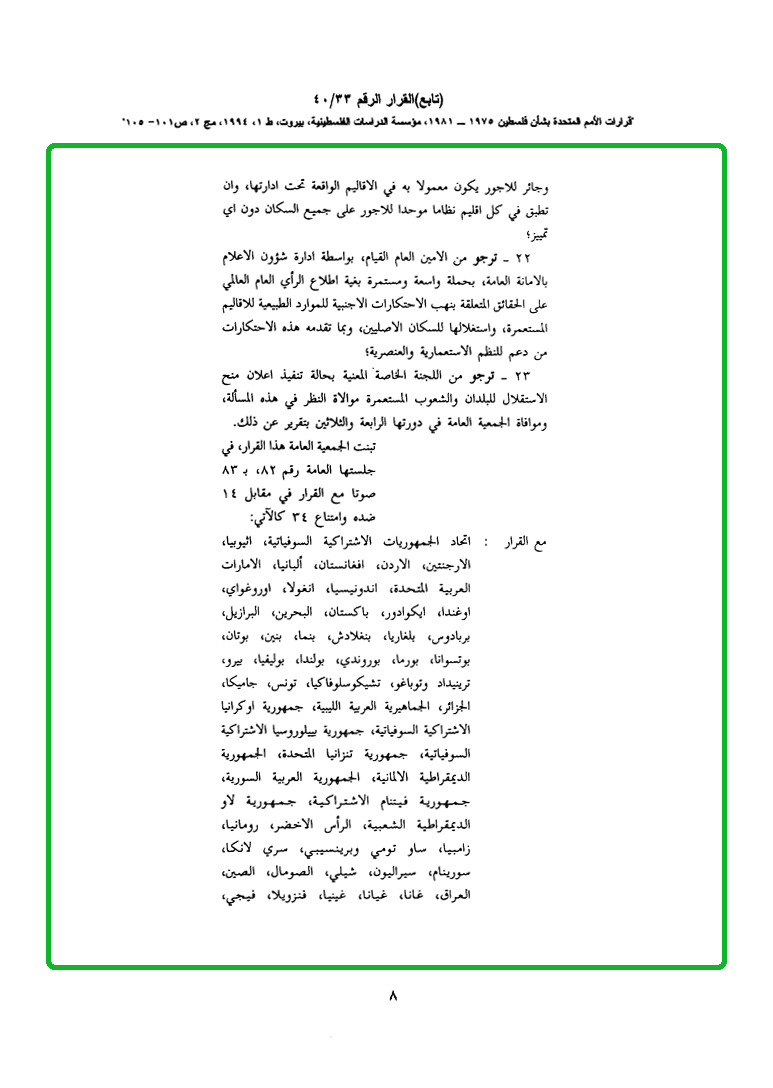 (تابع)القرار الرقم ٤٠/٣٣
"قرارات الأمم المتحدة بشأن فلسطين ١٩٧٥ ــ ١٩٨١، مؤسسة الدراسات الفلسطينية، بيروت، ط ١، ١٩٩٤، مج ٢، ص١٠١- ١٠٥"
وجائر للاجور يكون معمولا به في الاقاليم الواقعة تحت ادارتها، وان
تطبق في كل اقليم نظاما موحدا للاجور على جميع السكان دون اي
تمييز؛
٢٢ ــ ترجو من الامين العام القيام، بواسطة ادارة شؤون الاعلام
بالامانة العامة، بحملة واسعة ومستمرة بغية اطلاع الرأي العام العالمي
على الحقائق المتعلقة بنهب الاحتكارات الاجنبية للموارد الطبيعية للاقاليم
المستعمرة، واستغلالها للسكان الاصليين، وبما تقدمه هذه الاحتكارات
من دعم للنظم الاستعمارية والعنصرية؛
٢٣ ــ ترجو من اللجنة الخاصة المعنية بحالة تنفيذ اعلان منح
الاستقلال للبلدان والشعوب المستعمرة موالاة النظر في هذه المسألة،
وموافاة الجمعية العامة في دورتها الرابعة والثلاثين بتقرير عن ذلك.
تبنت الجمعية العامة هذا القرار، في
جلستها العامة رقم ٨٢، بـ ٨٣
صوتا مع القرار في مقابل ١٤
ضده وامتناع ٣٤ كالآتي:
مع القرار : اتحاد الجمهوريات الاشتراكية السوفياتية، اثيوبيا،
الارجنتين، الاردن، افغانستان، ألبانيا، الامارات
العربية المتحدة، اندونيسيا، انغولا، اوروغواي،
اوغندا، ايكوادور، باكستان، البحرين، البرازيل،
بربادوس، بلغاريا، بنغلادش، بنما، بنين، بوتان،
بوتسوانا، بورما، بوروندي، بولندا، بوليفيا، بيرو،
ترينيداد وتوباغو، تشيكوسلوفاكيا، تونس، جاميكا،
الجزائر، الجماهيرية العربية الليبية، جمهورية اوكرانيا
الاشتراكية السوفياتية، جمهورية بييلوروسيا الاشتراكية
السوفياتية، جمهورية تنزانيا المتحدة، الجمهورية
الديمقراطية الالمانية، الجمهورية العربية السورية،
جمهورية فيتنام الاشتراكية، جمهورية لاو
الديمقراطية الشعبية، الرأس الاخضر، رومانيا،
زامبيا، ساو تومي وبرينسيبي، سري لانكا،
سورينام، سيراليون، شيلي، الصومال، الصين،
العراق، غانا، غيانا، غينيا، فنزويلا، فيجي،
٨